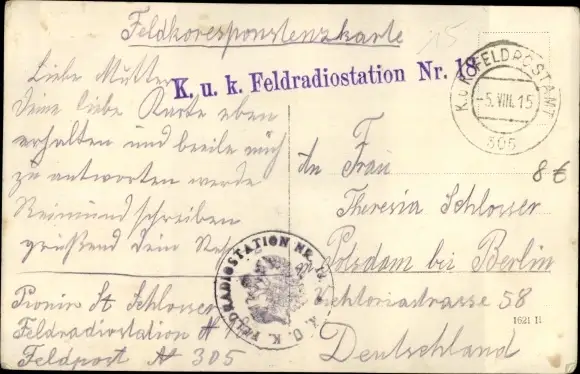 Feldkorespondenzkarte
15
K. u. k. Feldradiostation Nr. 18
K.u.K. FELDPOSTAMT
-5.VIII.15
305
Liebe Mutter
Deine liebe Karte eben
erhalten und beeile mich
zu antworten werde
Reimund schreiben
grüßend Dein
An Frau
Theresia Schlosser
Potsdam bei Berlin
Viktoriastrasse 58
Deutschland
8€
1621 11
K. U. K. FELDRADIOSTATION NR.
Pionir St Schlosser
Feldradiostation №
Feldpost № 305